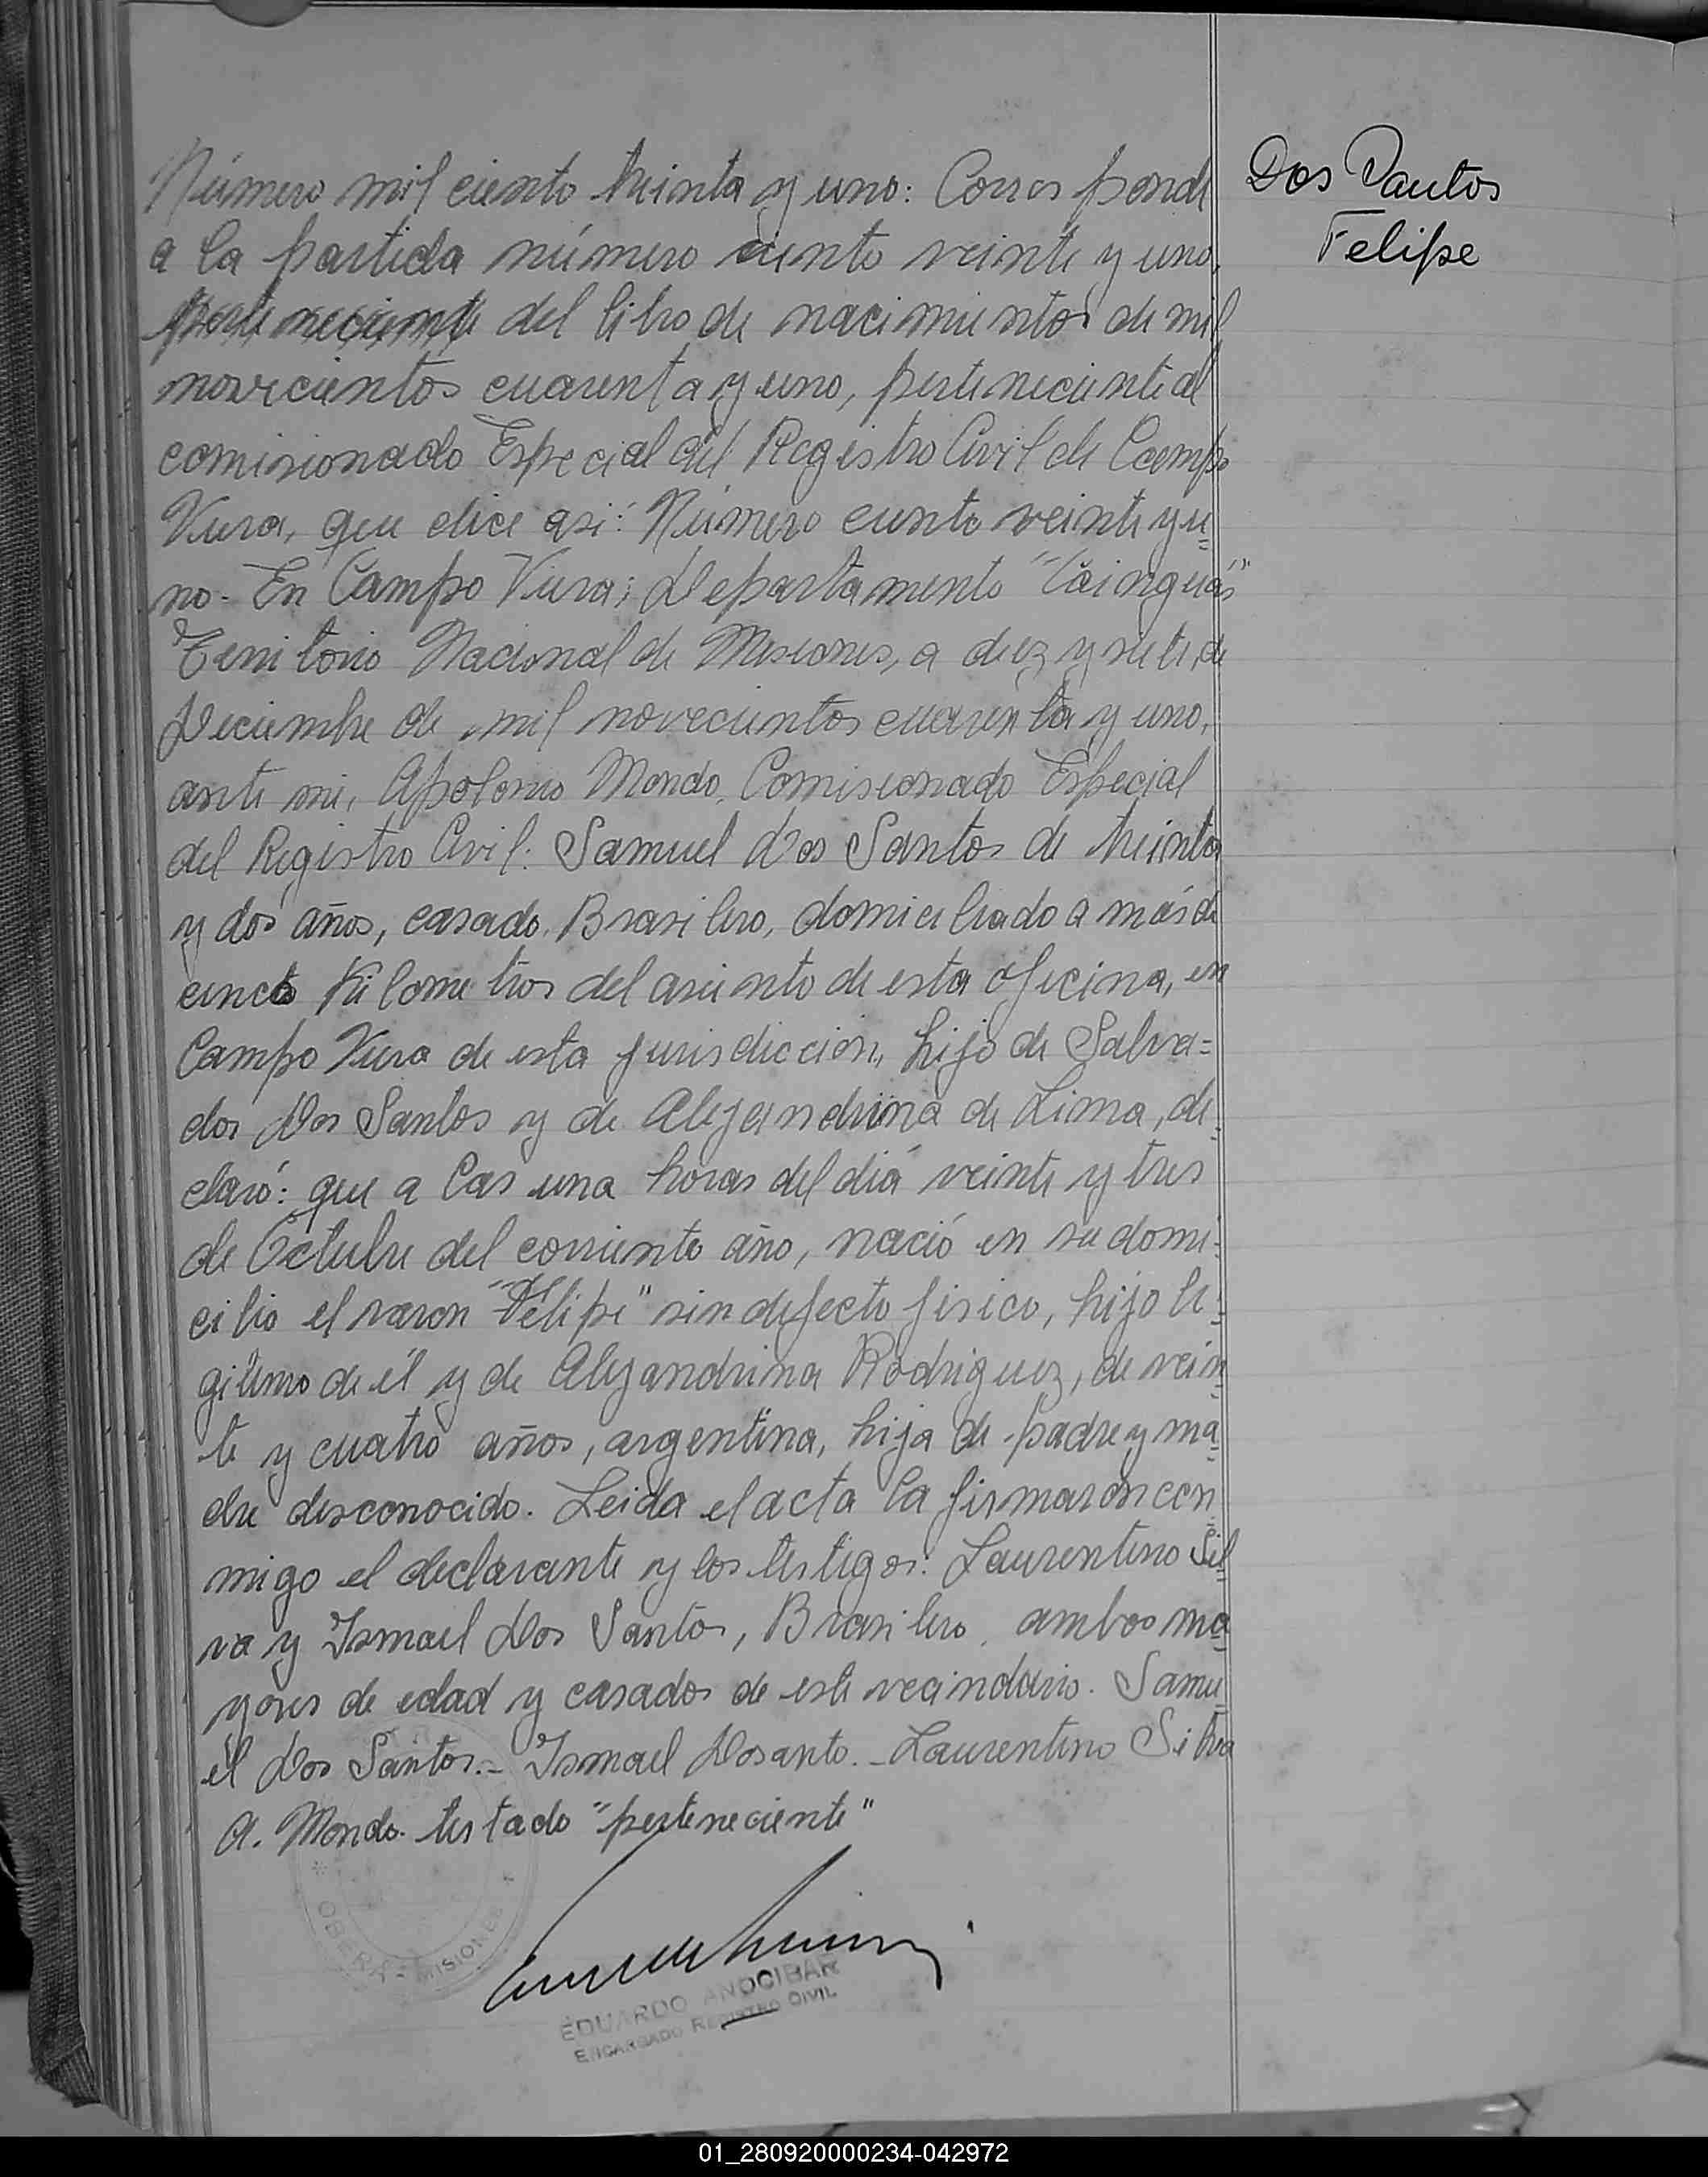 Dos Santos
Felipe
Número mil ciento treinta y uno: Corresponde
a la partida número ciento veinte y uno,
perteneciente del libro de nacimientos de mil
novecientos cuarenta y uno, perteneciente al
comisionado Especial del Registro Civil de Campo
Viera, que dice asi: Número ciento veinte y u=
no- En Campo Viera; Departamento "Cainguás"
Territorio Nacional de Misiones, a diez y siete, de
Deciembre de mil novecientos cuarenta y uno,
ante mi, Apolonio Mondo, Comisionado Especial
del Registro Civil: Samuel Dos Santos de treinta
y dos años, casado, Brasilero, domiciliado a más de
cinco Kilometros del asiento de esta oficina, en
Campo Viera de esta jurisdiccion, hijo de Salva=
dor Dos Santos y de Alejandrina de Lima, de=
claró: que a las una horas del diá veinte y tres
de Octubre del corriente año, nació en su domi=
cilio el varon "Felipe" sin defecto fisico, hijo le=
gitimo de él y de Alejandrina Rodriguez, de vein=
te y cuatro años, argentina, hija de padre y ma=
dre desconocido. Leida el acta la firmaron con
migo el declarante y los testigos: Laurentino Sil=
va y Ismael Dos Santos, Brasilero, ambos ma=
yores de edad y casados de este vecindario. Samu=
el Dos Santos.- Ismael Dosanto.- Laurentino Silva
A. Mondo. testado "perteneciente"
OBERA - MISIONES
EDUARDO ANOCIBAR
ENCARGADO REGISTRO CIVIL
01_280920000234-042972